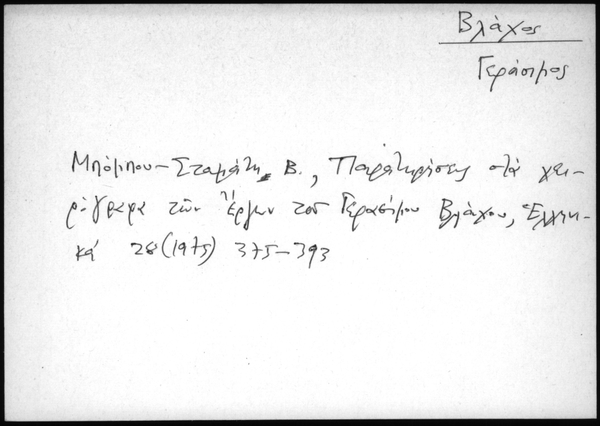 Βλάχος
Γεράσιμος
Μπόμπου-Σταμάτη, Β., Παρατηρήσεις στὰ χει-
ρόγραφα τῶν ἔργων τοῦ Γερασίμου Βλάχου, Ἑλληνι-
κά 28 (1975) 375-393